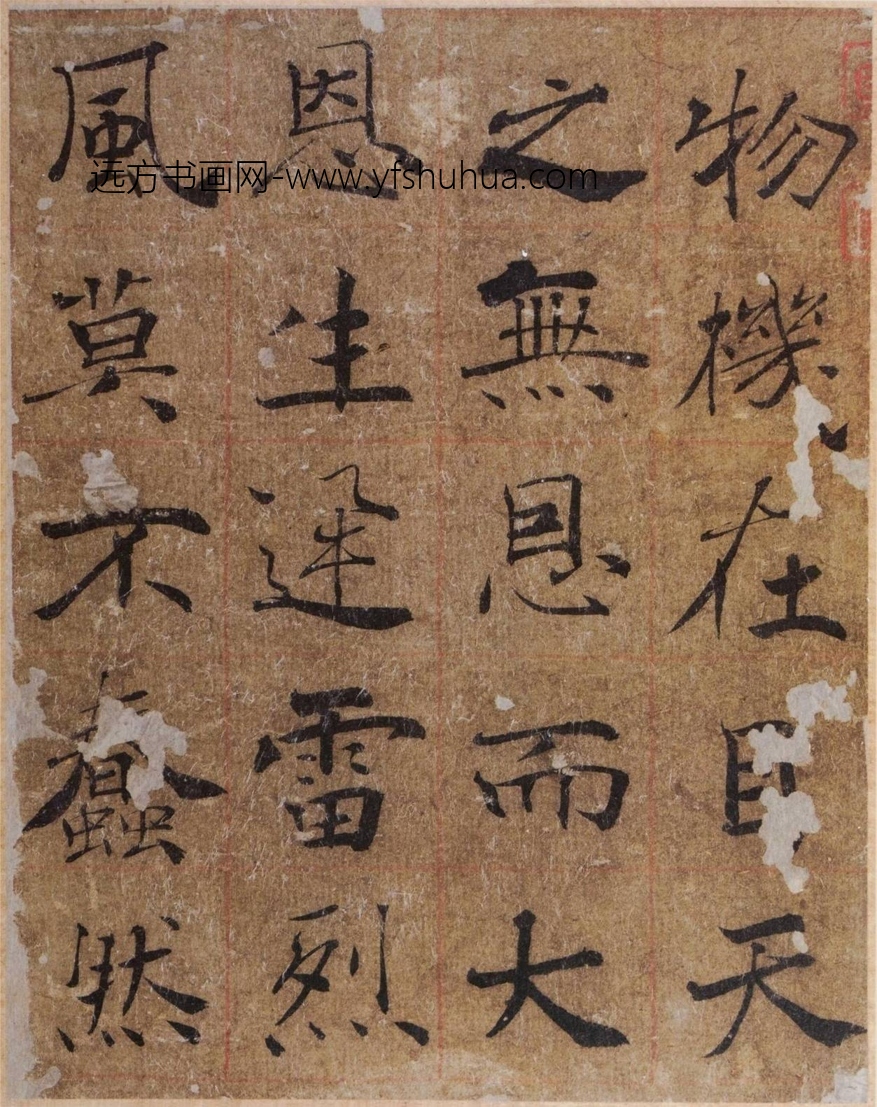 物機在目天
之無恩而大
恩生迅雷烈
風莫不蠢然
远方书画网-www.yfshuhua.com